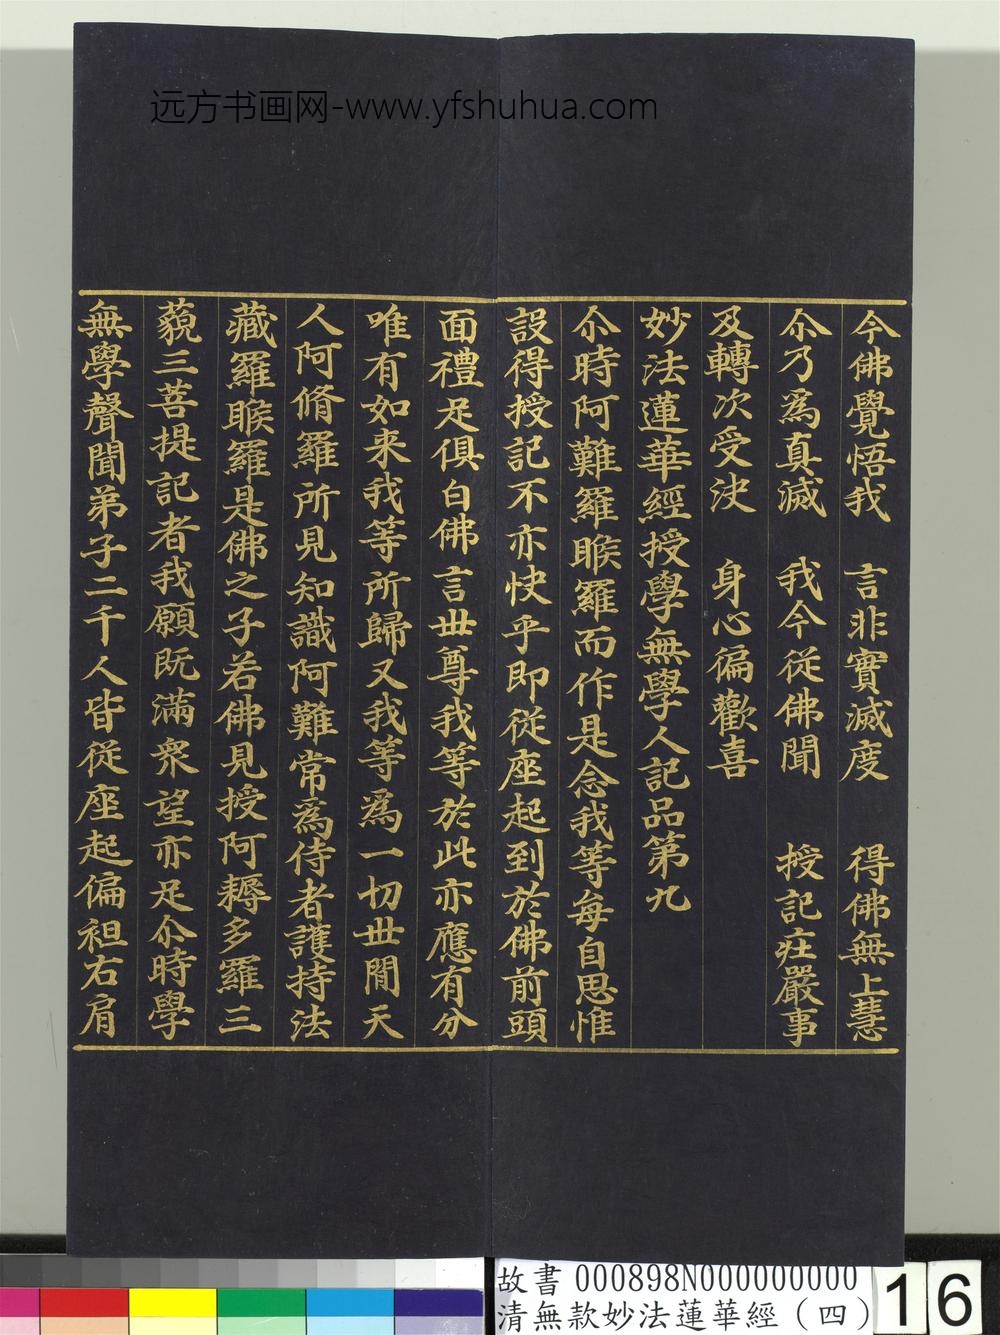 远方书画网-www.yfshuhua.com
今佛覺悟我　言非實滅度　得佛無上慧
尒乃為真滅　我今從佛聞　授記莊嚴事
及轉次受決　身心偏歡喜
妙法蓮華經授學無學人記品第九
尒時阿難羅睺羅而作是念我等每自思惟
設得授記不亦快乎即從座起到於佛前頭
面禮足俱白佛言世尊我等於此亦應有分
唯有如来我等所歸又我等為一切世間天
人阿脩羅所見知識阿難常為侍者護持法
藏羅睺羅是佛之子若佛見授阿耨多羅三
藐三菩提記者我願既滿衆望亦足尒時學
無學聲聞弟子二千人皆從座起偏袒右肩
故書 000898N000000000
清無款妙法蓮華經（四）
16